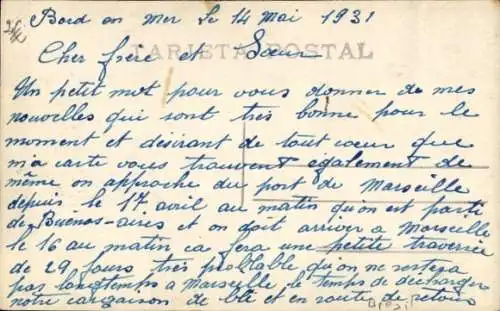 Bord en Mer le 14 Mai 1931
TARJETA POSTAL
Cher frère et Sœur
Un petit mot pour vous donner de mes
nouvelles qui sont très bonne pour le
moment et désirant de tout cœur que
ma carte vous trouvent également de
même on approche du port de Marseille
depuis le 17 avril au matin qu'on est parti
de Buénos-aires et on doit arriver a Marseille
le 16 au matin ca fera une petite traversée
de 29 jours très probtable qu'on ne restera
pas longtemps a Marseille le temps de décharger
notre cargaison de blé et en route de retour